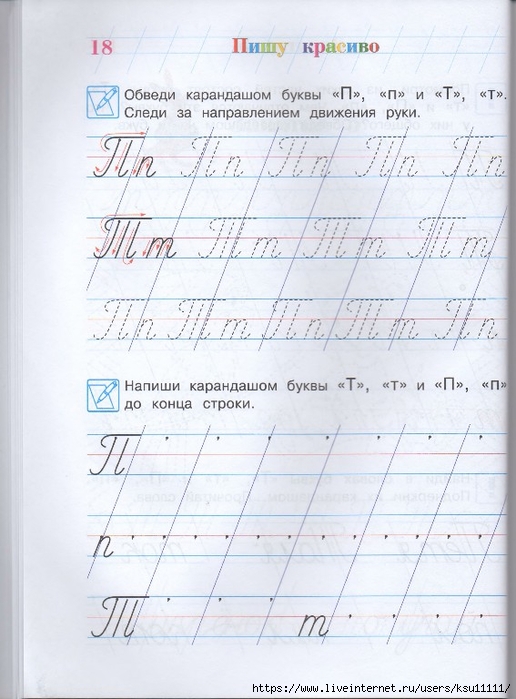 18 Пишу красиво
Обведи карандашом буквы «П», «п» и «Т», «т».
Следи за направлением движения руки.
Пп Пп Пп Пп Пп
Тт Тт Тт Тт
Пп Тт Пп Тт Пп
Напиши карандашом буквы «Т», «т» и «П», «п»
до конца строки.
П
п
Т т
https://www.liveinternet.ru/users/ksu11111/